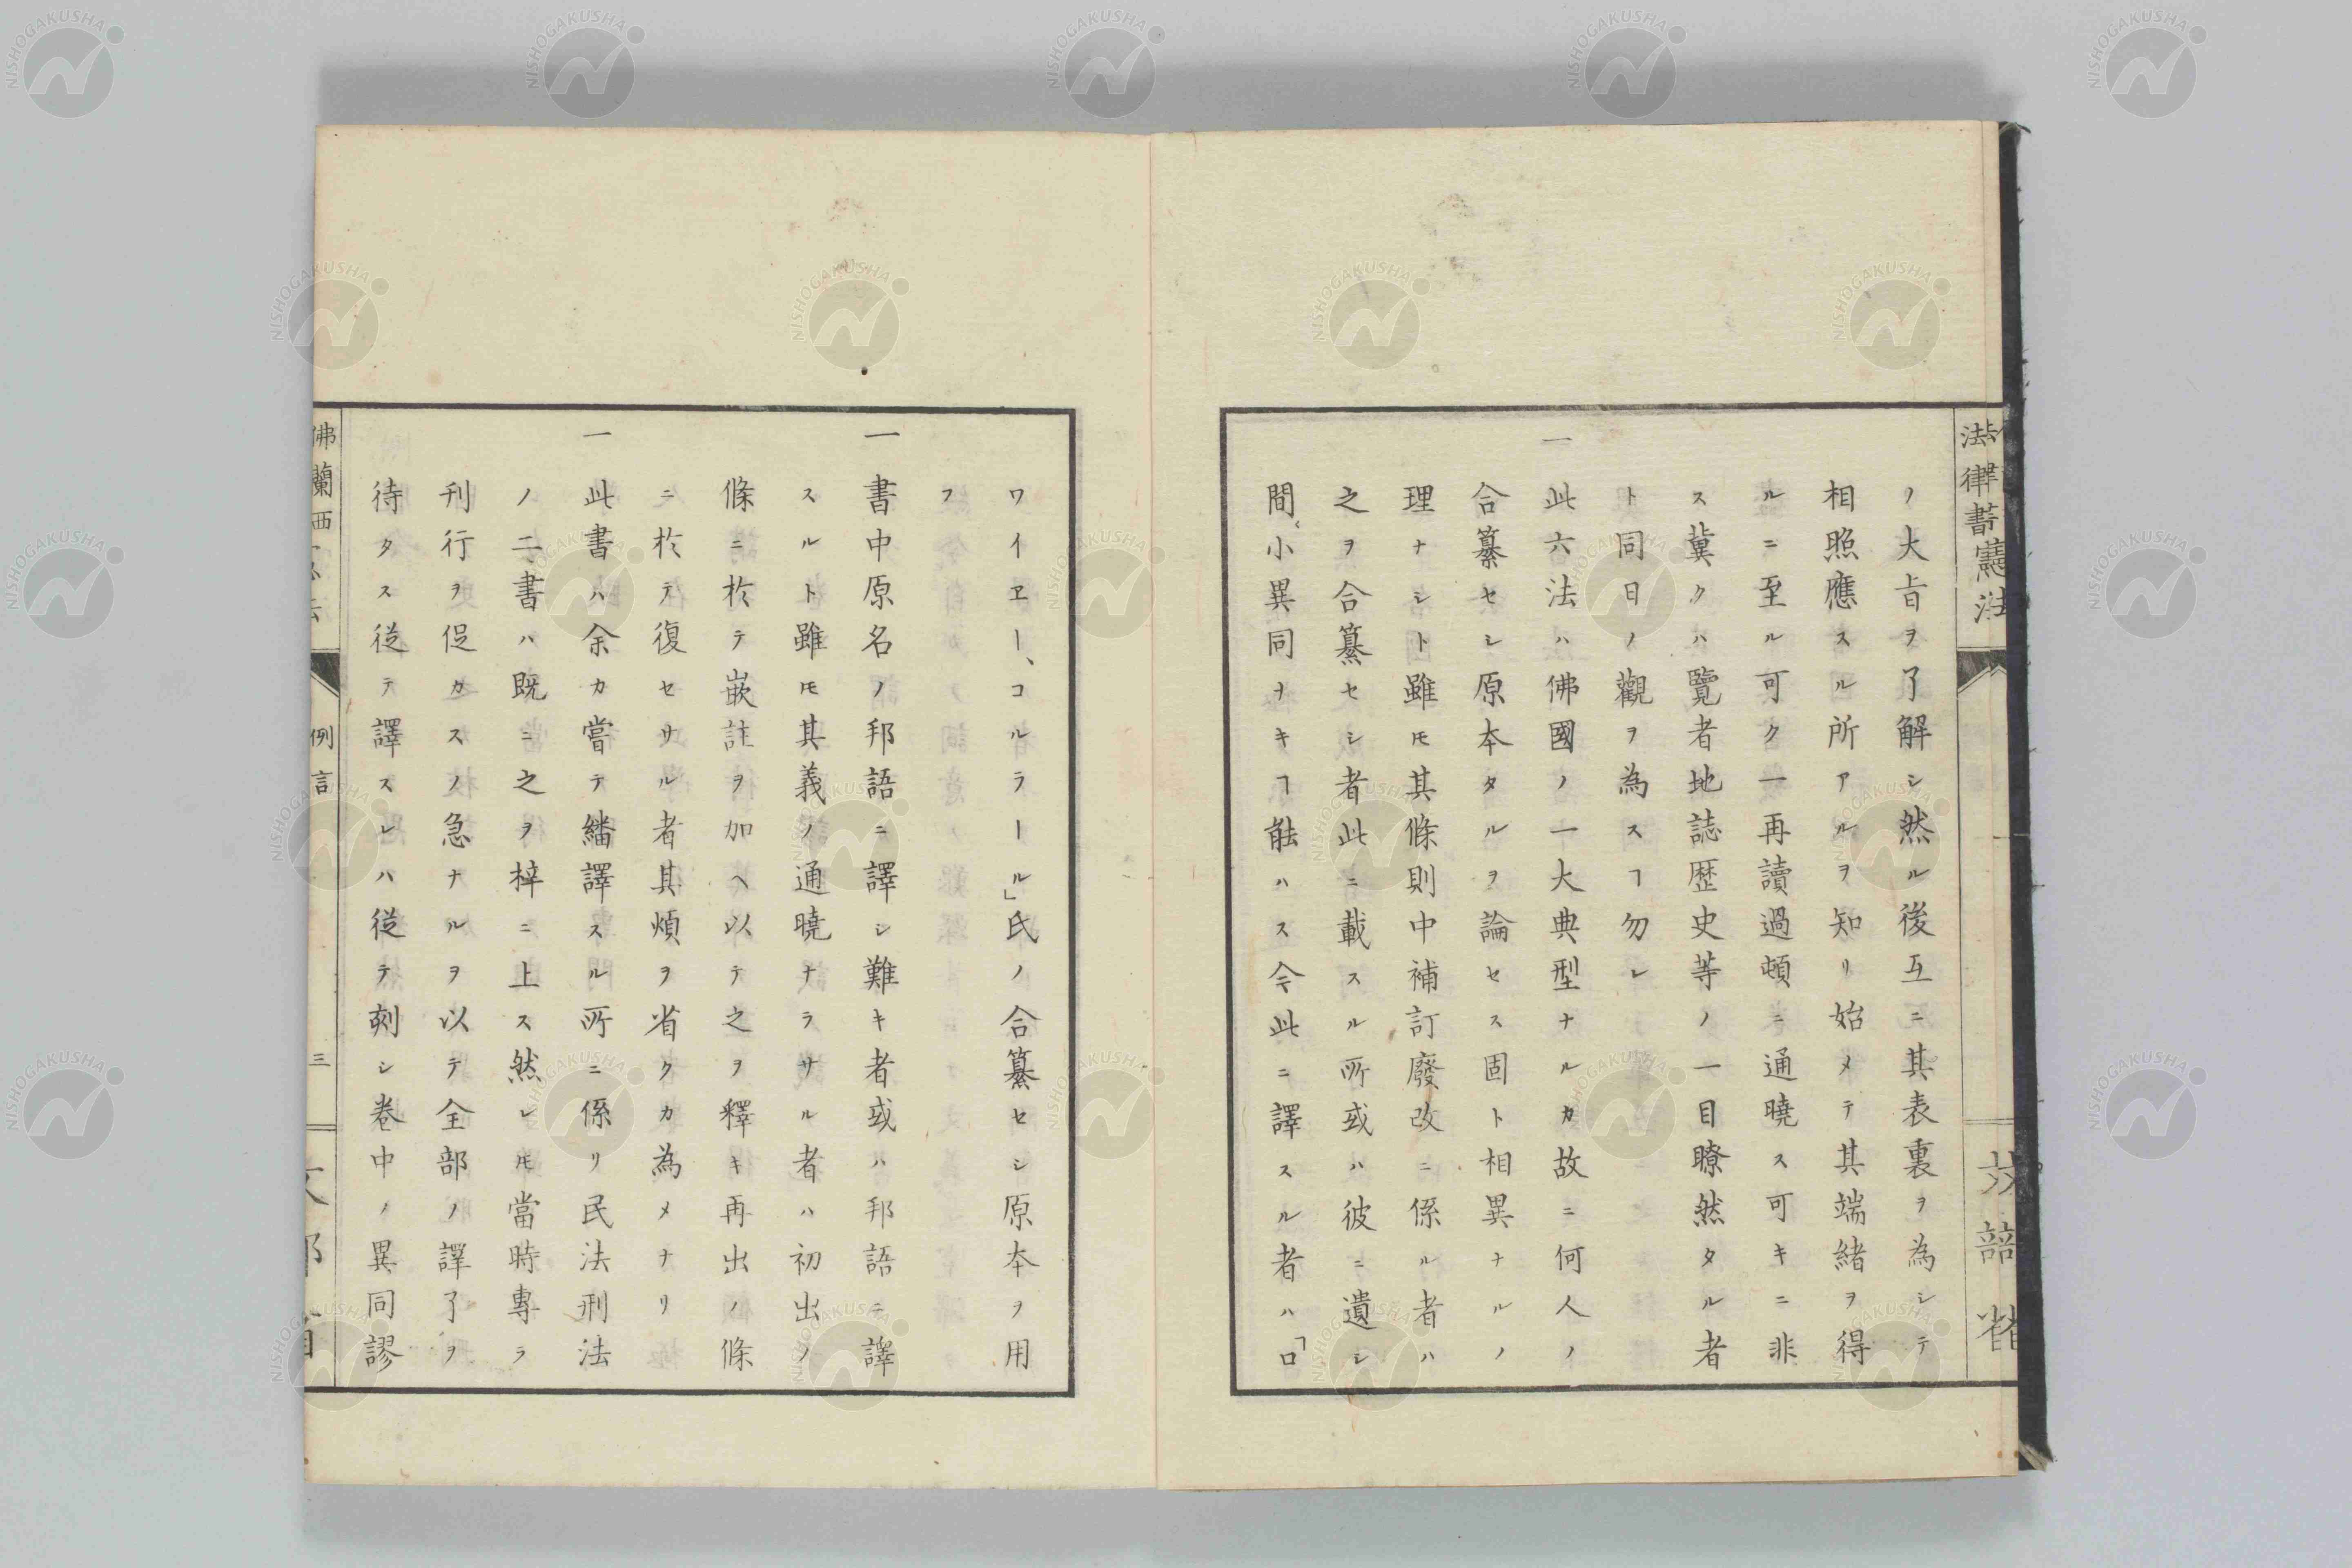 ノ大旨ヲ了解シ然ル後互ニ其表裏ヲ為シテ
相照應スル所アルヲ知リ始メテ其端緒ヲ得
ルニ至ル可ク一再讀過頓ニ通曉ス可キニ非
ス冀クハ覽者地誌歴史等ノ一目瞭然タル者
ト同日ノ觀ヲ為スヿ勿レ
一 此六法ハ佛國ノ一大典型ナルカ故ニ何人ノ
合纂セシ原本タルヲ論セス固ト相異ナルノ
理ナシト雖𪜈其條則中補訂廢改ニ係ル者ハ
之ヲ合纂セシ者此ニ載スル所或ハ彼ニ遺シ
間〻小異同ナキヿ能ハス今此ニ譯スル者ハ「ロ
ワイヱー、コルラール」氏ノ合纂セシ原本ヲ用
フ
一 書中原名ノ邦語ニ譯シ難キ者或ハ邦語ニ譯
スルト雖𪜈其義ノ通曉ナラサル者ハ初出ノ
條ニ於テ嵌註ヲ加ヘ以テ之ヲ釋キ再出ノ條
ニ於テ復セサル者其煩ヲ省クカ為メナリ
一 此書ハ余カ嘗テ繙譯スル所ニ係リ民法刑法
ノ二書ハ既ニ之ヲ梓ニ上ス然レ𪜈當時專ラ
刊行ヲ促カスノ急ナルヲ以テ全部ノ譯了ヲ
待タス從テ譯スレハ從テ刻シ卷中ノ異同謬
佛蘭西
例言
三
NISHOGAKUSHA